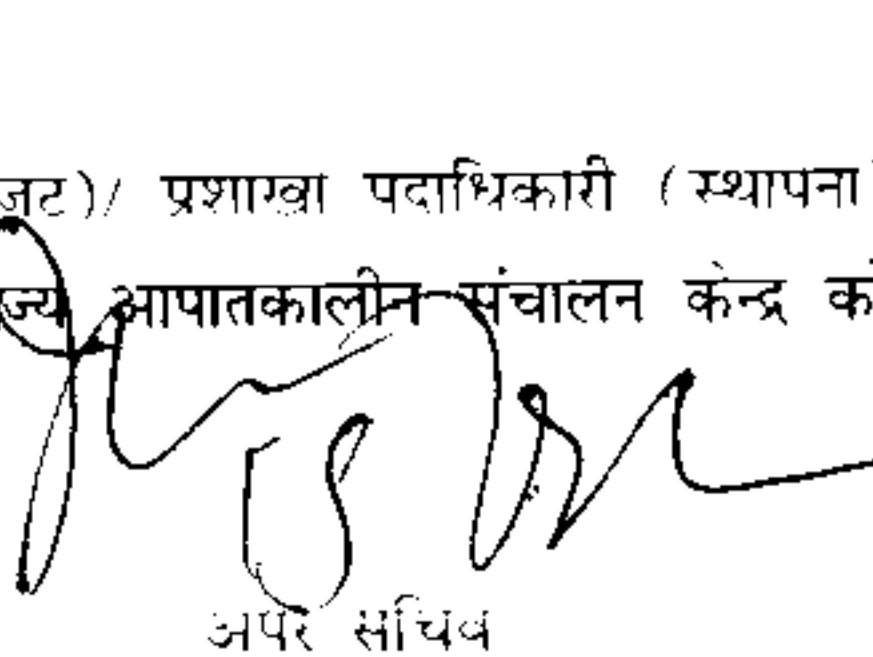 जट)/ प्रशाखा पदाधिकारी (स्थापना
ज्य आपातकालीन संचालन केन्द्र को
अपर सचिव